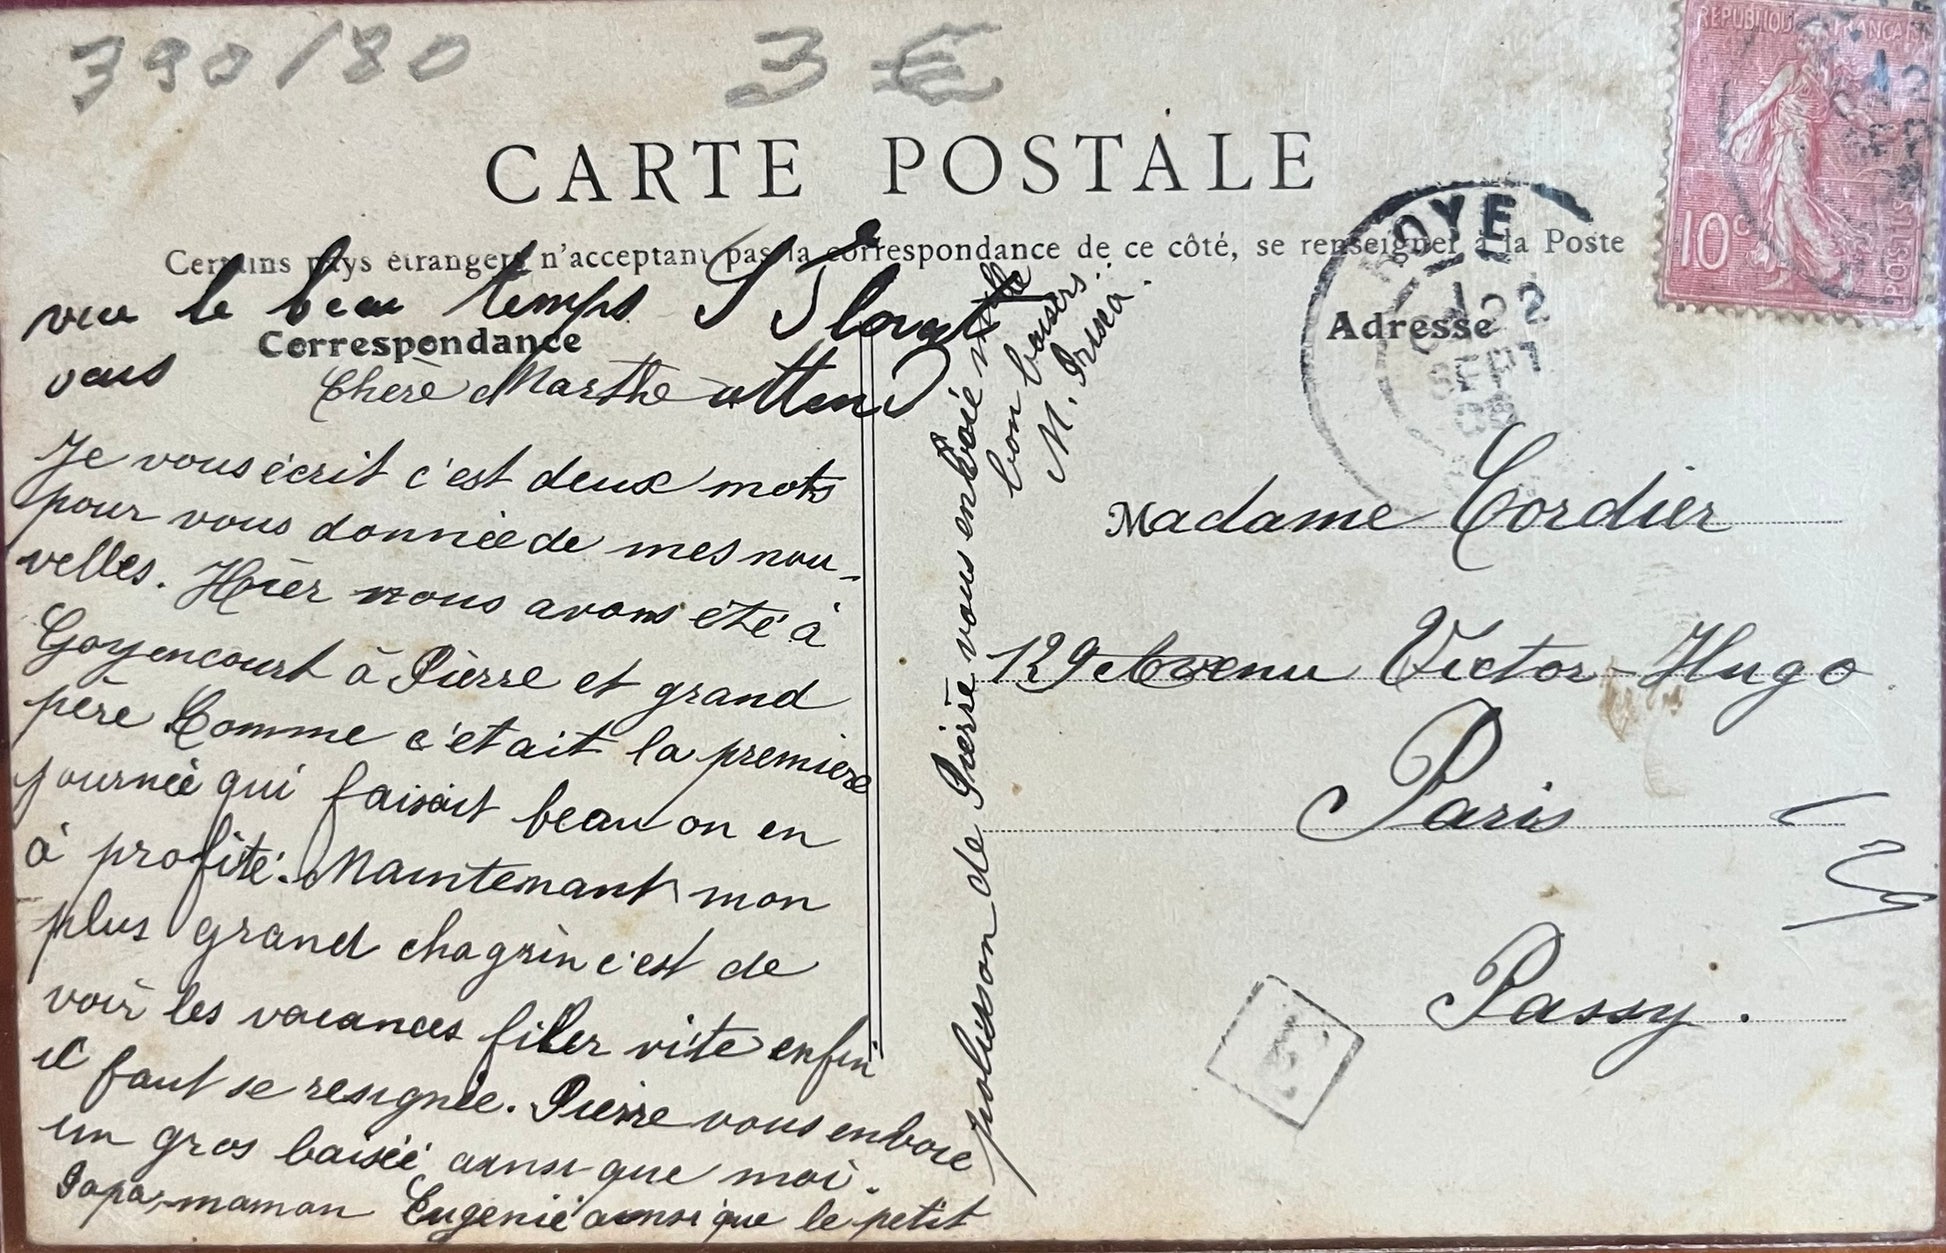 390/80 3 €
REPUBLIQUE FRANÇAISE
10c
POSTES
CARTE POSTALE
Certains pays étrangers n'acceptant pas la correspondance de ce côté, se renseigner à la Poste
ROYE
22
vu le beau temps
vous attend
Correspondance
Adresse
Chère Marthe
Je vous écrit c'est deux mots
pour vous donnée de mes nou-
velles. Hier nous avons été à
Goyencourt à Pierre et grand
père Comme c'etait la première
journée qui faisait beau on en
à profité. Maintenant mon
plus grand chagrin c'est de
voir les vacances filer vite enfin
il faut se resignée. Pierre vous envoie
un gros baisée ainsi que moi.
Papa, maman Eugenie ainsi que le petit
polisson de Pierre vous envoie mille
bon baisers.
M.
Madame Cordier
129 Avenu Victor-Hugo
Paris
Passy.
E